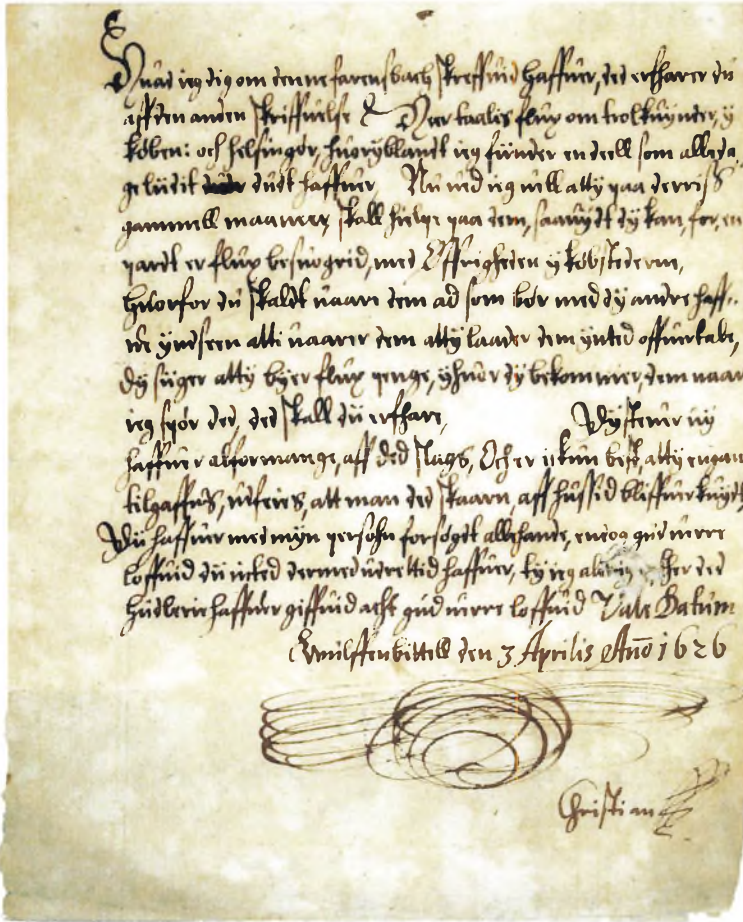 Huad ieg dig om denne farensbach skreffuid haffuer, ded erfharer du
aff den anden skriffuelse Her taalis flux om trolkuynder, y
køben: och helsingør, huoryblandt ieg fünder en deell som alleda
ge lüdit düdt haffuer Nu ued ieg uell atty paa derris
gammell maaneer, skall hielpe paa dem, saauydt dy kan, for, en
pardt er flux besuogrid, med Øffrigheden y købstederrn,
huorfor du skaldt uaare dem ad som bør med dy andre haff..
we yndseen atti uaarer dem atty laader dem ynted offuertale,
dy siiger atty byer flux penge, yhuor dy bekommer, dem naar
ieg spør ded, ded skall dü erfhare, Dysteuer uy
haffuer alformange, aff ded slags, Och er best, atty engan
tilgaffns, att man ded skaarn, aff hussid bliffuer kuydt
Du haffuer med myn persohn forsøgt allehande, endog gud uerre
loffuid dü icked dermed udrettid haffuer, ty ieg her ded
haffuer giffuid acht gud uerre loffuid Vale Datum
Wulffenbittell den 3 Aprilis Año 1626
Christian